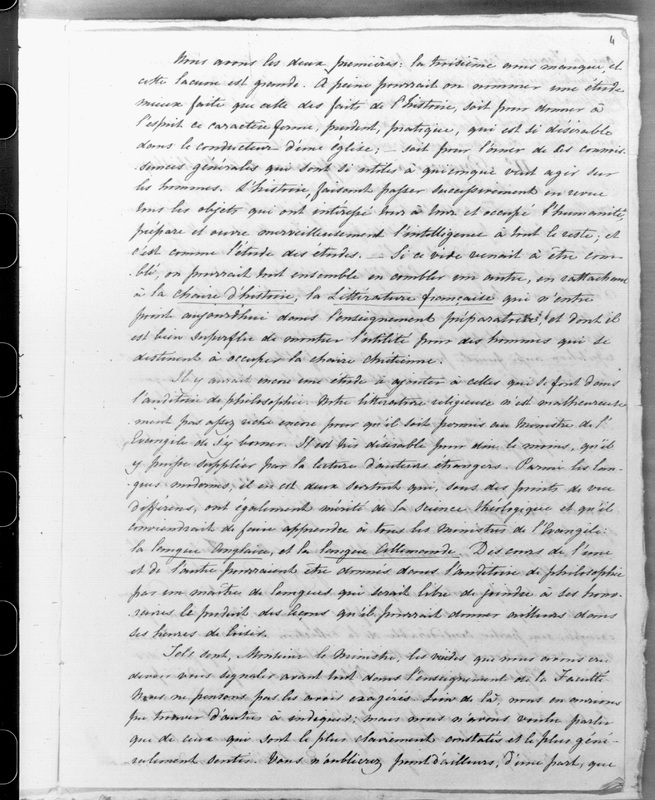 4
Nous avons les deux premières: la troisième nous manque, et
cette lacune est grande. A peine pourrait on nommer une étude
mieux faite que celle des faits de l'histoire, soit pour donner à
l'esprit ce caractère ferme, prudent, pratique, qui est si désirable
dans le conducteur d'une église; — soit pour l'orner de ces connais-
sances générales qui sont si utiles à quiconque veut agir sur
les hommes. L'histoire, faisant passer successivement en revue
tous les objets qui ont intéressé tour à tour et occupé l'humanité,
prépare et ouvre merveilleusement l'intelligence à tout le reste; et
c'est comme l'étude des études. — Si ce vide venait à être com-
blé, on pourrait tout ensemble en combler un autre, en rattachant
à la chaire d'histoire, la Littérature française qui n'entre
point aujourdhui dans l'enseignement préparatoire, et dont il
est bien superflu de montrer l'utilité pour des hommes qui se
destinent à occuper la chaire chrétienne.
Il y aurait encore une étude à ajouter à celles qui se font dans
l'auditoire de philosophie. Notre littérature religieuse n'est malheureuse-
ment pas assez riche encore pour qu'il soit permis au Ministre de l'
Evangile de s'y borner. Il est très désirable pour dire le moins, qu'il
y puisse suppléer par la lecture d'auteurs étrangers. Parmi les lan-
gues modernes, il en est deux surtout qui, sous des points de vue
différens, ont également mérité de la science théologique et qu'il
conviendrait de faire apprendre à tous les Ministres de l'Evangile:
la langue Anglaise, et la langue Allemande. Des cours de l'une
et de l'autre pourraient être donnés dans l'auditoire de philosophie
par un maître de langues qui serait libre de joindre à ses hono-
raires le produit des leçons qu'il pourrait donner ailleurs dans
ses heures de loisir.
Tels sont, Monsieur le Ministre, les vuides que nous avons cru
devoir vous signaler avant tout dans l'enseignement de la Faculté.
Nous ne pensons pas les avoir exagérés. Loin de là, nous en aurions
pu trouver d'autres à indiquer: mais nous n'avons voulu parler
que de ceux qui sont le plus clairement constatés et le plus géné-
ralement sentis. Vous n'oublierez point d'ailleurs, d'une part, que